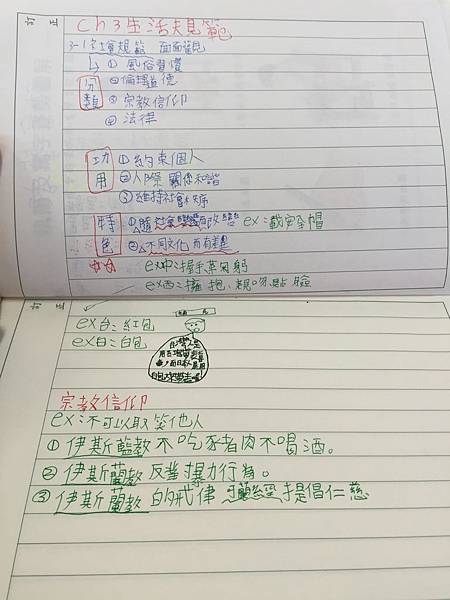 訂正
Ch3生活規範
3-1社會規範 面面觀
分類
①風俗習慣
②倫理道德
③宗教信仰
④法律
功用
①約束個人
②人際關係和諧
③維持社會秩序
特色
①隨社會變遷而改變 ex:戴安全帽
②不同文化而有差異
ex中:握手、鞠躬
ex西:擁抱、親吻臉臉
訂正
ex台:紅包
ex日:白包
宗教信仰
ex:不可以取笑他人
①伊斯藍教不吃豬肉不喝酒。
②伊斯蘭教反對暴力行為。
③伊斯蘭教的戒律 可蘭經提倡仁慈